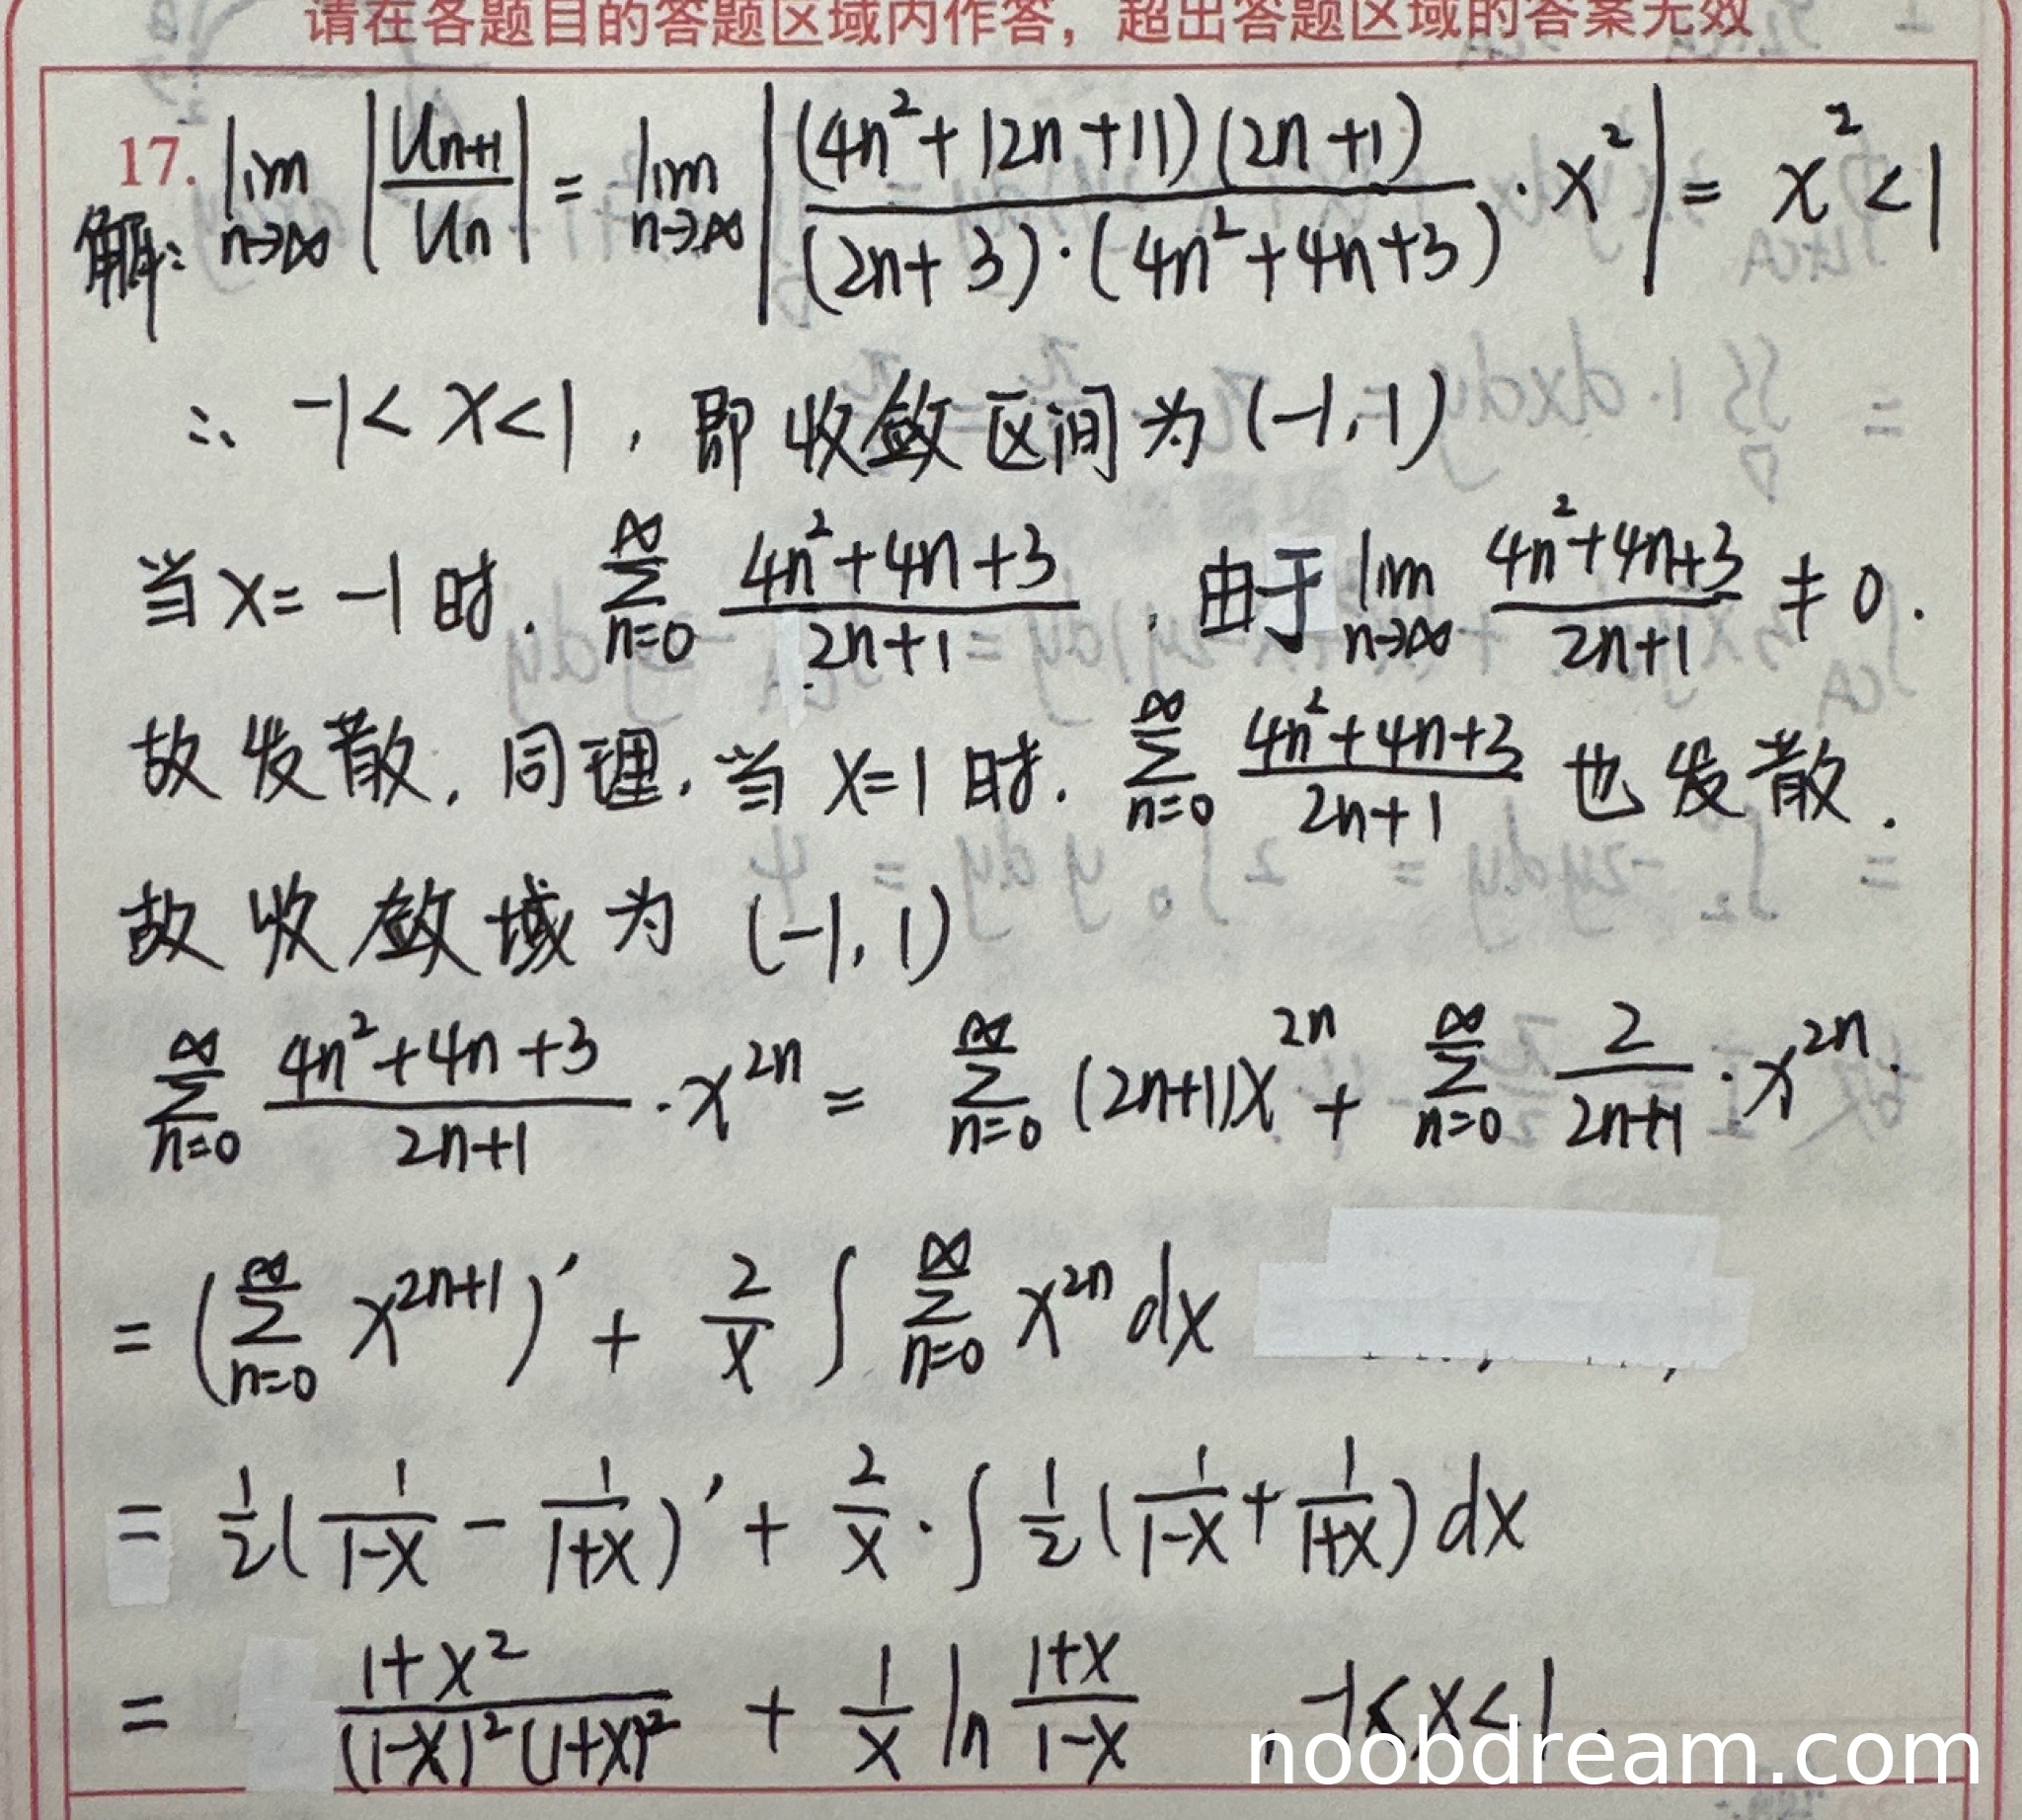 请在各题目的答题区域内作答，超出答题区域的答案无效
17. lim_{n→∞} |U_{n+1}/U_n| = lim_{n→∞} |(4n²+12n+11)(2n+1)/((2n+3)·(4n²+4n+3)) · x²| = x² < 1
解:
∴ -1 < x < 1, 即收敛区间为 (-1,1)
当 x = -1 时. ∑_{n=0}^{∞} (4n²+4n+3)/(2n+1) , 由于 lim_{n→∞} (4n²+4n+3)/(2n+1) ≠ 0.
故发散, 同理, 当 x=1 时. ∑_{n=0}^{∞} (4n²+4n+3)/(2n+1) 也发散.
故收敛域为 (-1, 1)
∑_{n=0}^{∞} (4n²+4n+3)/(2n+1) · x^{2n} = ∑_{n=0}^{∞} (2n+1)x^{2n} + ∑_{n=0}^{∞} 2/(2n+1) · x^{2n}.
= (∑_{n=0}^{∞} x^{2n+1})′ + 2/x ∫ ∑_{n=0}^{∞} x^{2n} dx
= 1/2 (1/(1-x) - 1/(1+x))′ + 2/x · ∫ 1/2 (1/(1-x) + 1/(1+x)) dx
= (1+x²)/((1-x)²(1+x)²) + 1/x ln (1+x)/(1-x) , -1<x<1.
noobdream.com